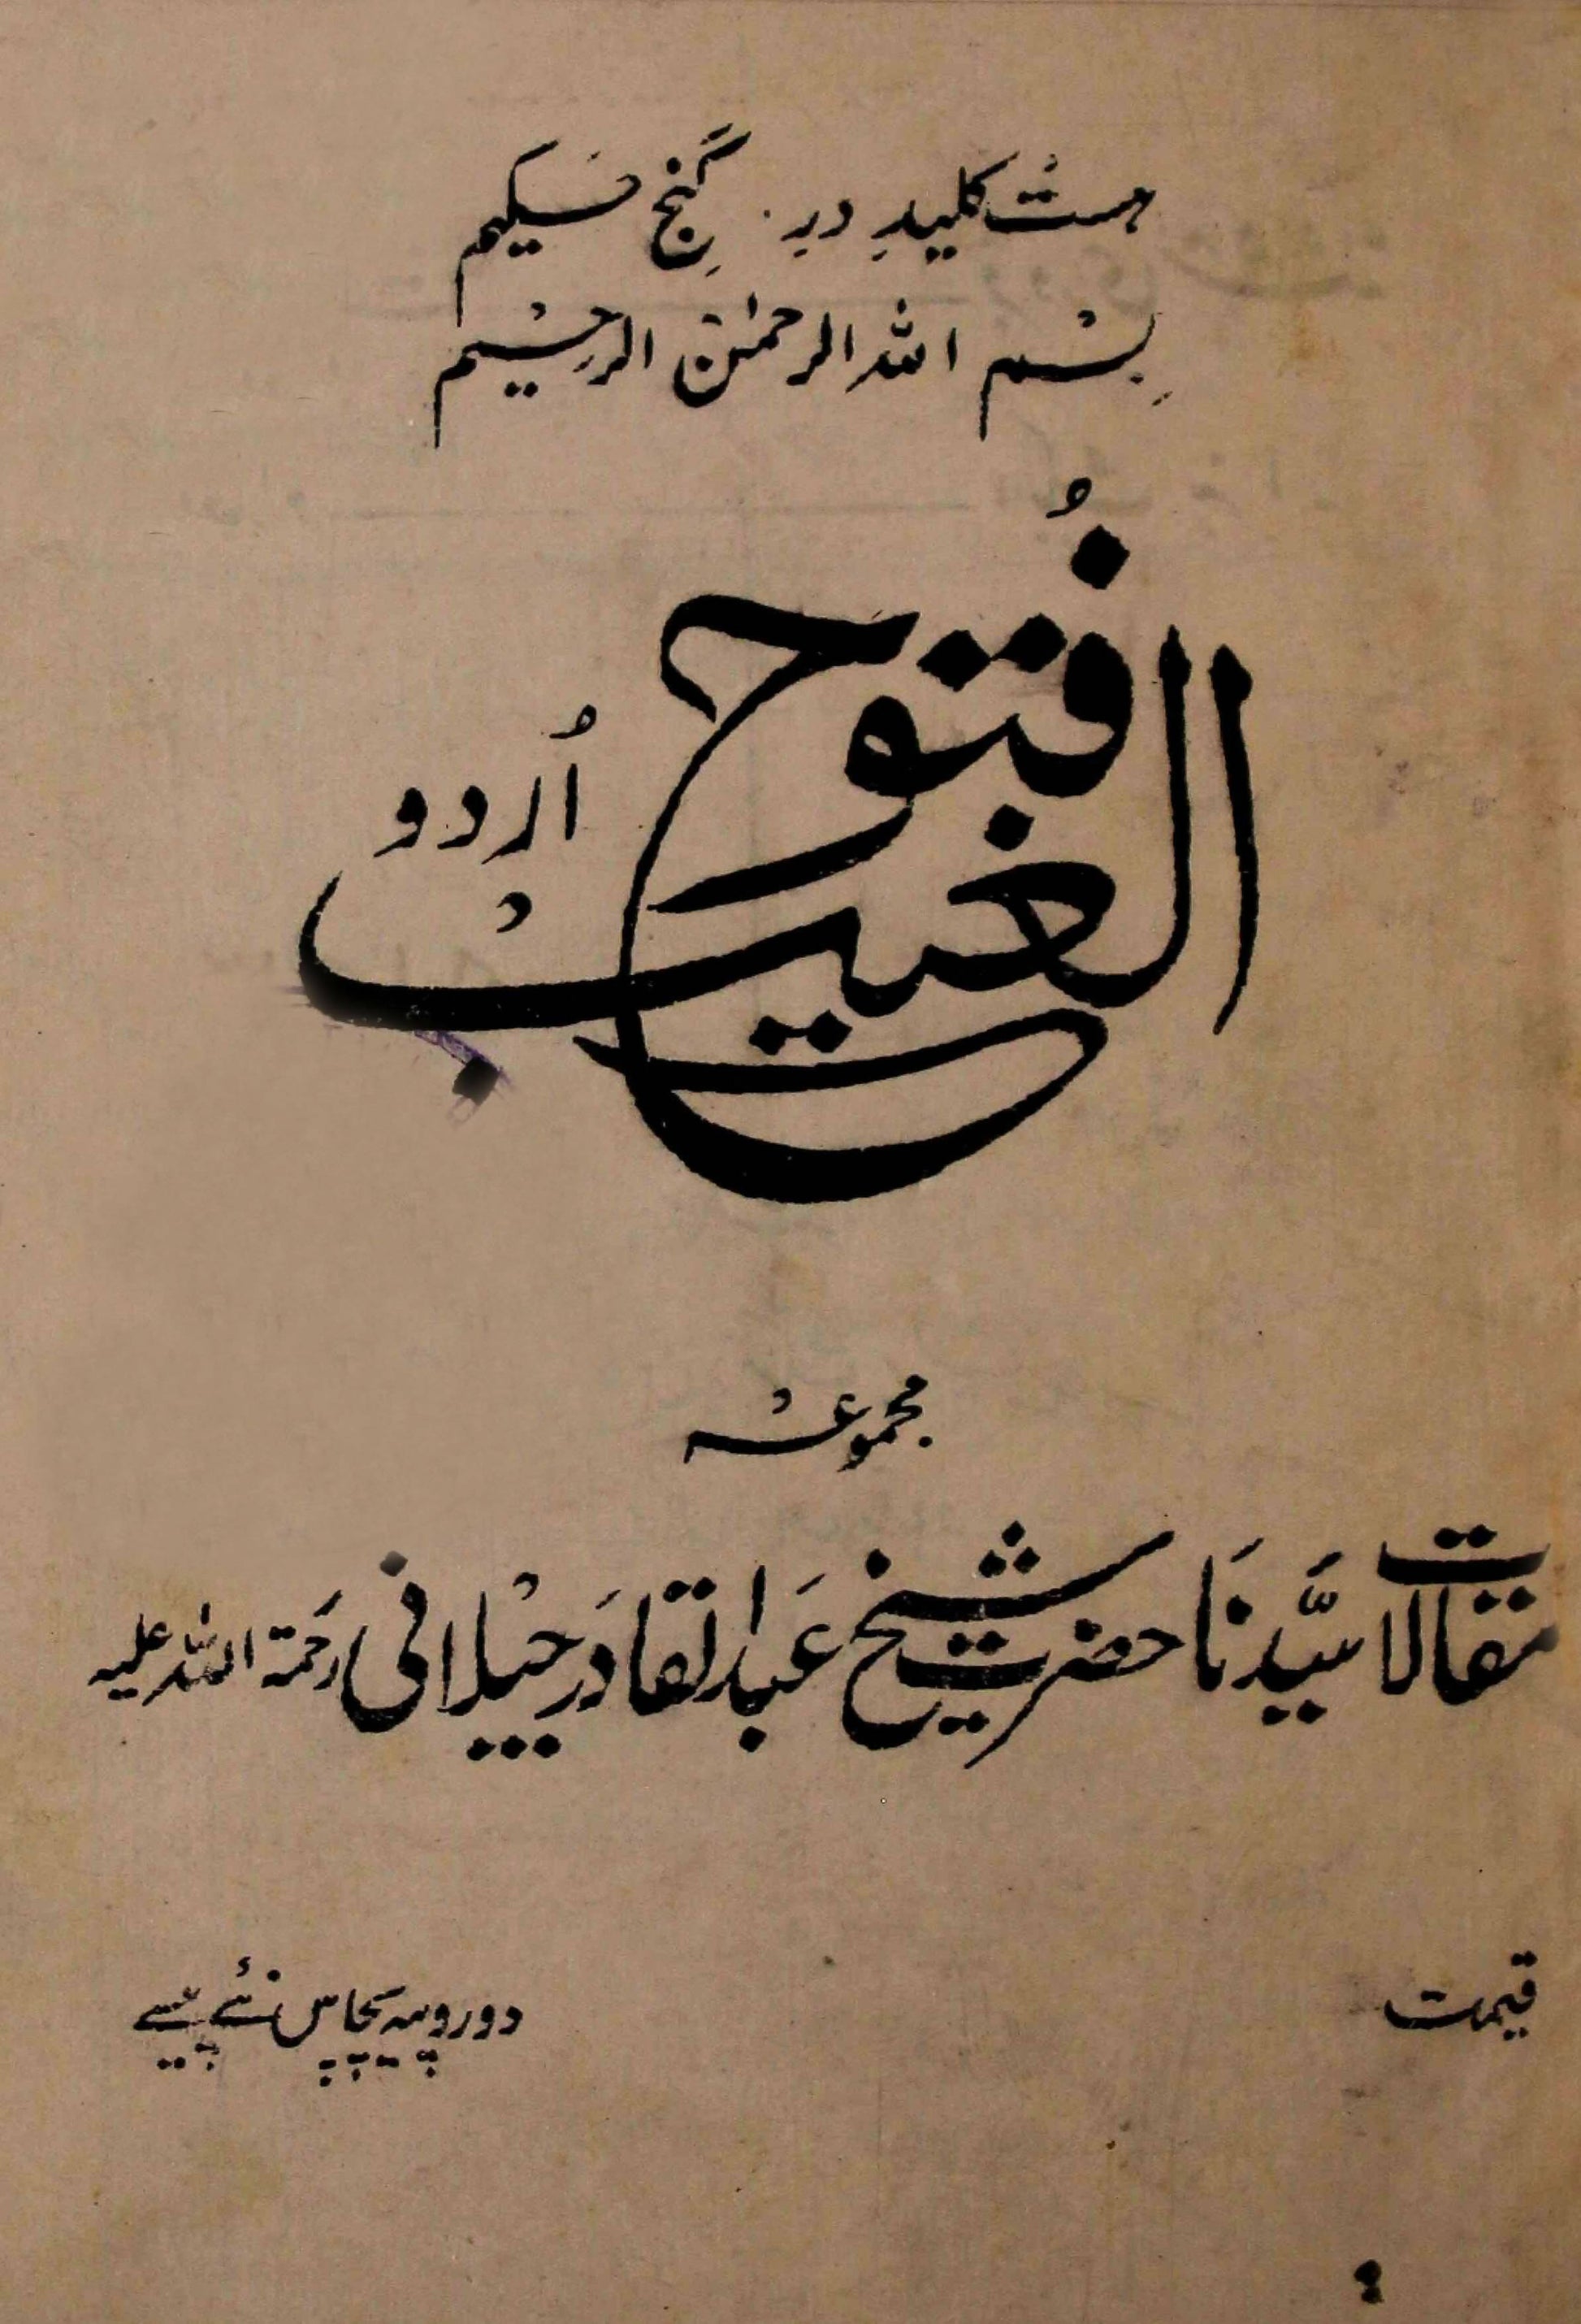 ہست کلیدِ درِ گنجِ حکیم
بِسْم اللہ الرحمٰن الرحیْم
فُتوح
الغیبْ اُردو
مجموعہ
مقالات سیّدنَا حضرت شیخ عَبدالقادَر جیْلانی رَحمۃ اللہ علیہ
قیمت دو روپیہ پچاس نئے پیسے